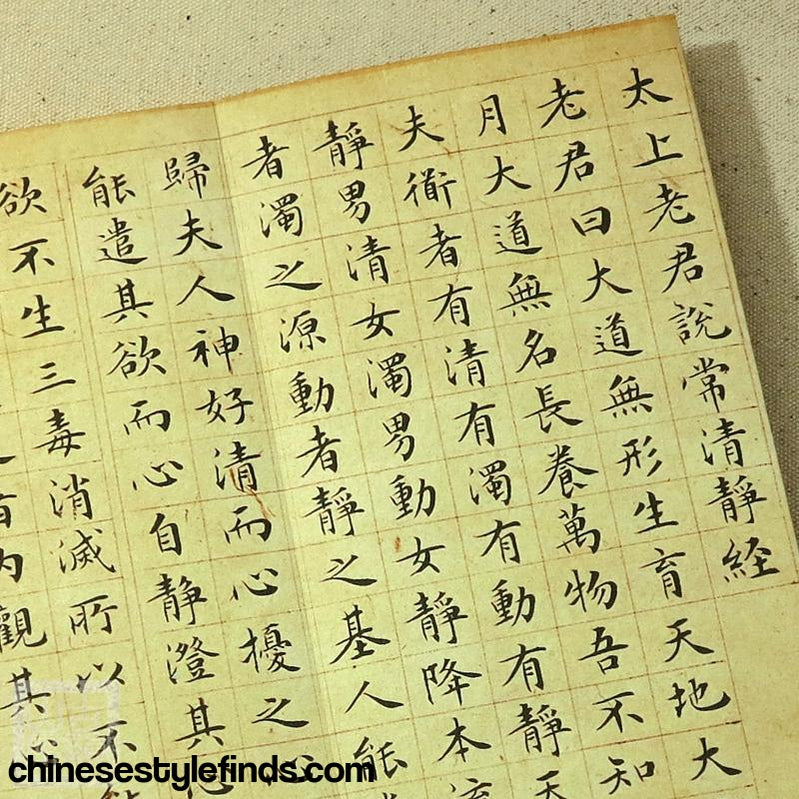 太上老君說常清靜経
老君曰大道無形生育天地大
月大道無名長養萬物吾不知
夫衜者有清有濁有動有靜天
靜男清女濁男動女靜降本流
者濁之源動者靜之基人能
歸夫人神好清而心擾之心
能遣其欲而心自靜澄其心
欲不生三毒消滅所以不能
内觀其心
chinesestylefinds.com